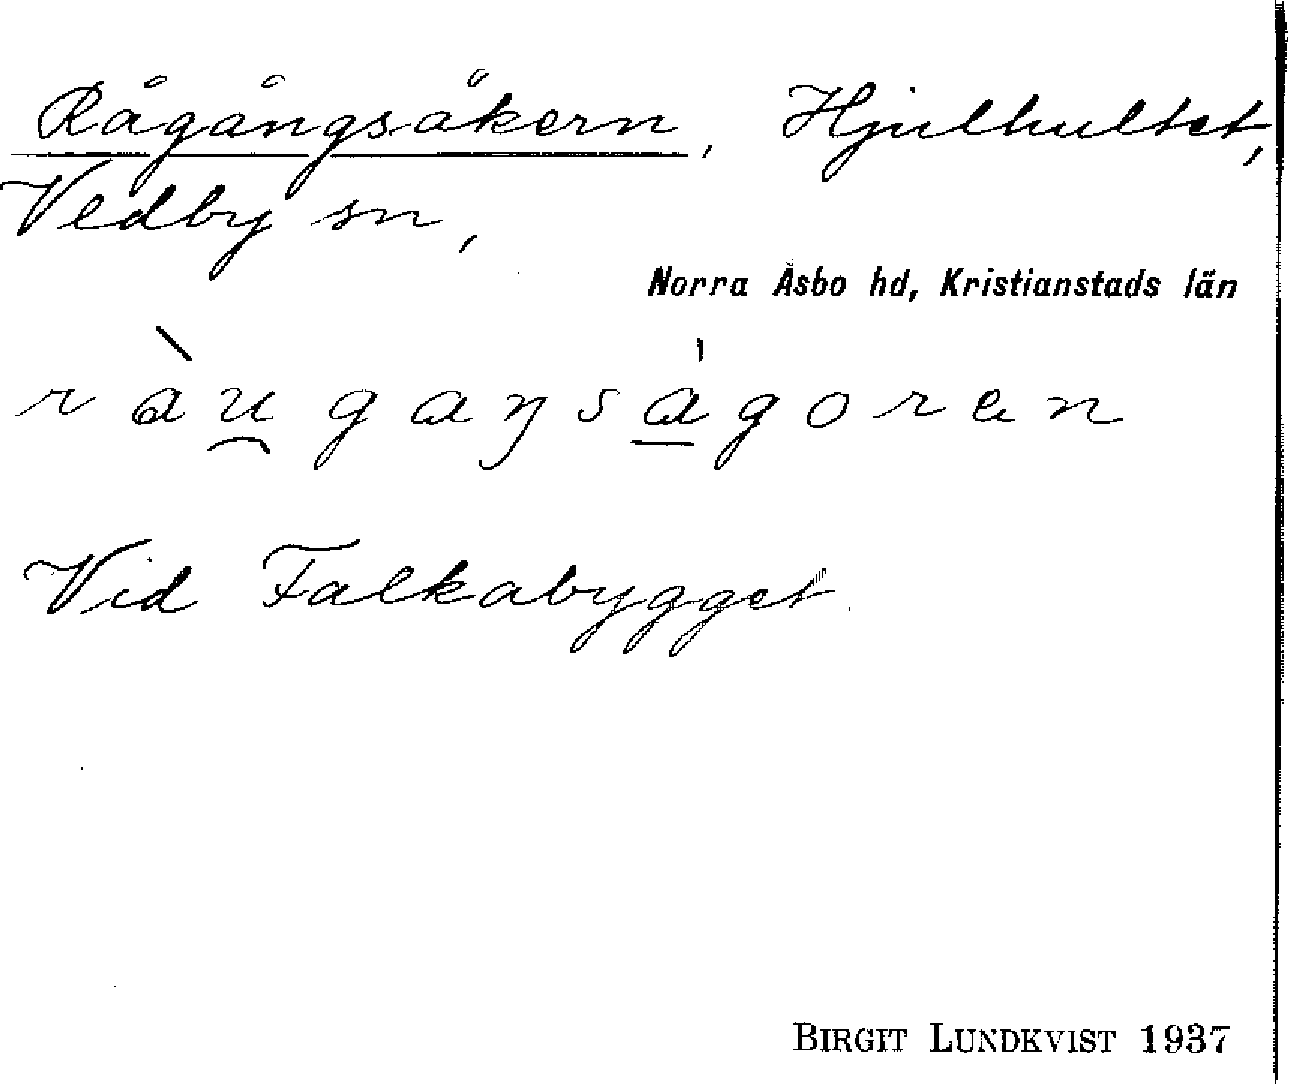 Rågångsåkern, Hjulhultet,
Vedby sn,
Norra Åsbo hd, Kristianstads län
ràu̯gaŋsa̲̍goren
Vid Falkabygget.
BIRGIT LUNDKVIST 1937